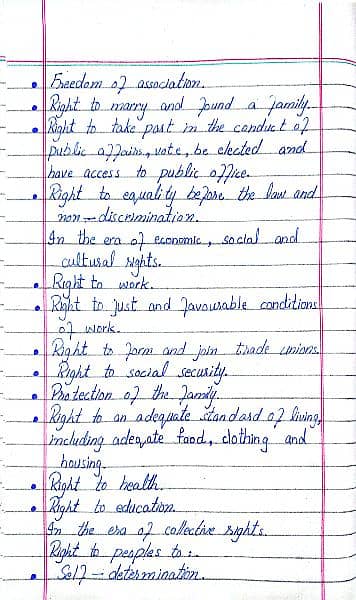 • Freedom of association.
• Right to marry and found a family.
• Right to take part in the conduct of
public affairs, vote, be elected and
have access to public office.
• Right to equality before the law and
non-discrimination.
In the era of economic, social and
cultural rights.
• Right to work.
• Right to just and favourable conditions
of work.
• Right to form and join trade unions.
• Right to social security.
• Protection of the family.
• Right to an adequate standard of living,
including adequate food, clothing and
housing.
• Right to health.
• Right to education.
In the era of collective rights.
Right to peoples to :-
• Self-determination.